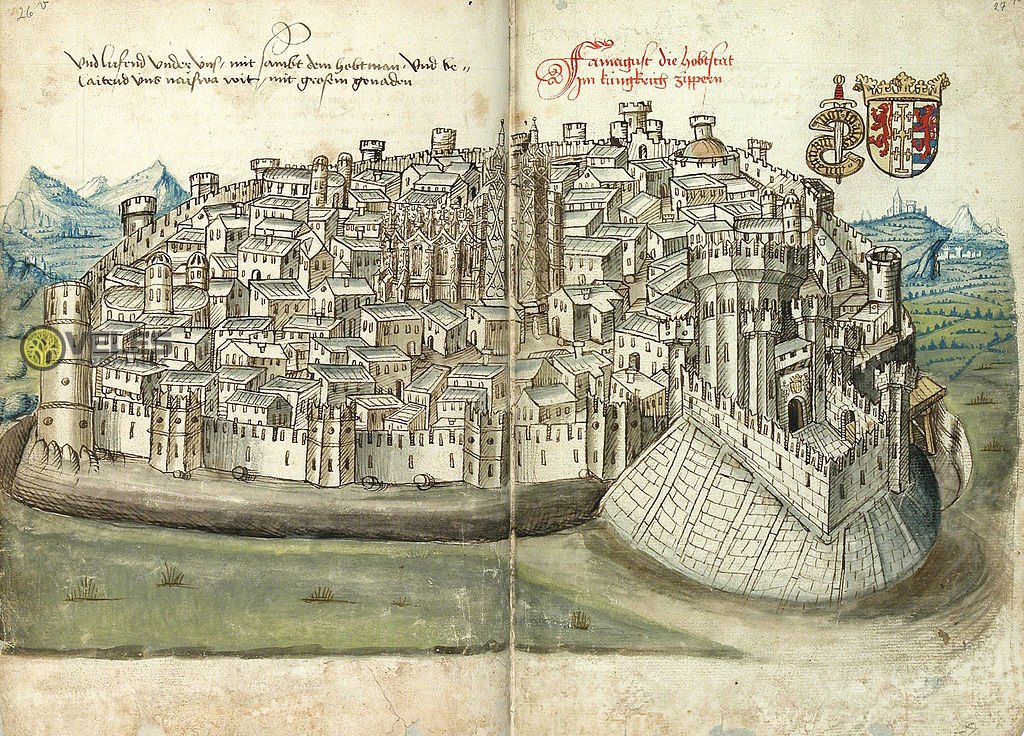 26 v
27
Vnd lufend vnder vns / mit sambt dem hobtman / Vnd be„
laitend vns naiswa wit / mit großem genaden
Famagust die hobtstat
Im kungkreich zippern
VELES